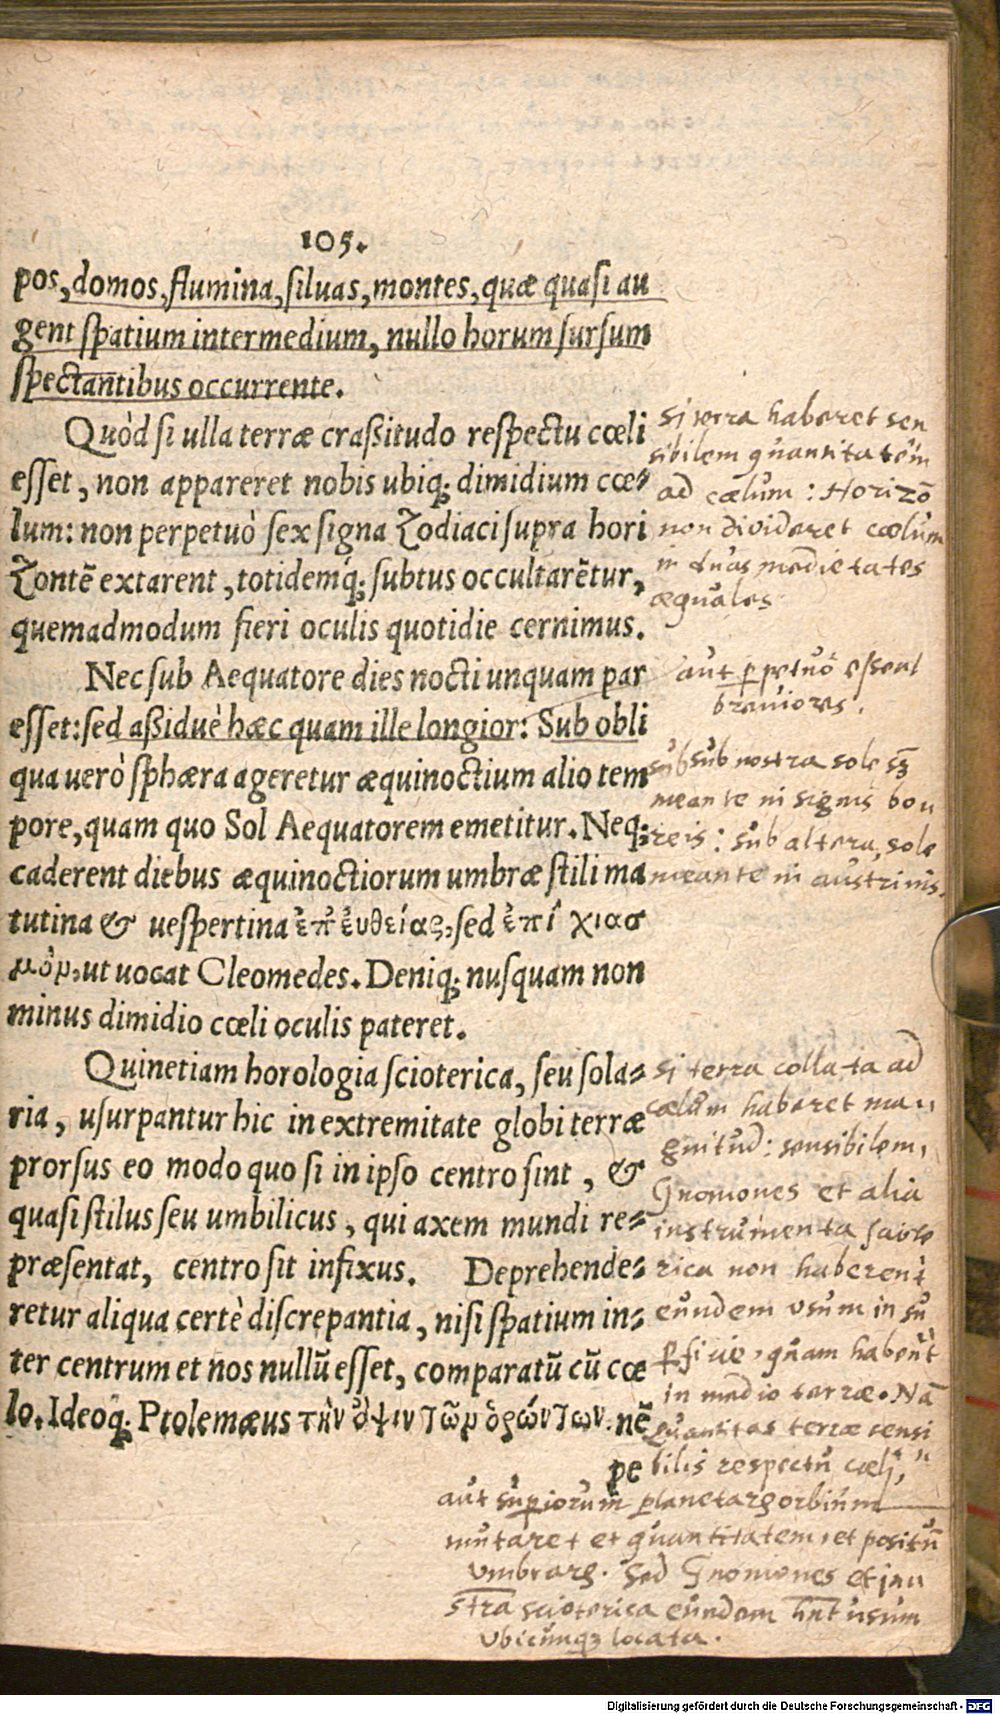 105.
pos, domos, flumina, siluas, montes, quæ quasi au
gent spatium intermedium, nullo horum sursum
spectantibus occurrente.
Quòd si ulla terræ craßitudo respectu cœli
esset, non appareret nobis ubiq; dimidium cœ-
lum: non perpetuò sex signa Zodiaci supra hori
Zontē extarent, totidemq́; subtus occultarētur,
quemadmodum fieri oculis quotidie cernimus.
Nec sub Aequatore dies nocti unquam par
esset: sed aßiduè hæc quam ille longior: Sub obli
qua uerò sphæra ageretur æquinoctium alio tem
pore, quam quo Sol Aequatorem emetitur. Neq;
caderent diebus æquinoctiorum umbræ stili ma
tutina & uespertina ἐπ' ἐυθείας, sed ἐπὶ χιασ
μὸν, ut uocat Cleomedes. Deniq; nusquam non
minus dimidio cœli oculis pateret.
Quinetiam horologia scioterica, seu sola-
ria, usurpantur hic in extremitate globi terræ
prorsus eo modo quo si in ipso centro sint, &
quasi stilus seu umbilicus, qui axem mundi re-
præsentat, centro sit infixus. Deprehende-
retur aliqua certè discrepantia, nisi spatium in-
ter centrum et nos nullū esset, comparatū cū cœ
lo. Ideoq́; Ptolemæus τὴν ὄψιν τῶν ὁρώντων. nē
pe
si terra haberet sen
sibilem quantitatem
ad cælum: Horizō
non divideret cœlum
in duas medietates
æquales
aut ꝑpetuo essent
breuiores.
sub nostra sole
meante in signis bo
reis: sub altera, sole
meante in austrinis.
si terra collata ad
cælum haberet ma
gnitud: sensibilem,
Gnomones et alia
instrumenta sciote
rica non haberent
eundem usum in su
ꝑficie, quam habent
in medio terræ. Nā
quantitas terræ sensi
bilis respectu cœli,
aut supiorum planetarꝝ orbium
mutaret et quantitatem, et positū
umbrarꝝ. Sed Gnomones et inn
stra scioterica eundem hnt usum
ubicunqꝫ locata.
Digitalisierung gefördert durch die Deutsche Forschungsgemeinschaft - DFG